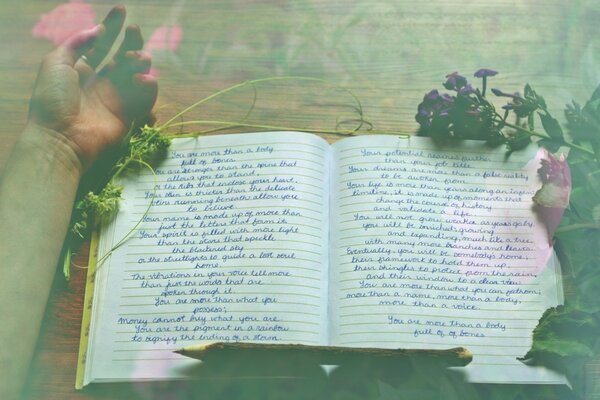 You are more than a body
full of bones.
You are stronger than the spine that
allows you to stand,
or the ribs that enclose your heart.
Your life is thicker than the delicate
veins running beneath allow you
to believe.
Your name is made up of more than
just the letters that form it
Your spirit is filled with more light
than the stars that speckle
the blackened sky
or the streetlights to guide a lost soul
home.
The vibrations in your voice tell more
than just the words that are
spoken through it.
You are more than what you
possess;
Money cannot buy what you are.
You are the pigment in a rainbow
to signify the ending of a storm.
Your potential reaches further
than your cell
Your dreams are more than a false reality
to be asleep for.
Your life is more than years along an inging
timeline, it is made up of moments that
change the course of history
and validate a life.
You will not grow weaker as years go by,
you will be enriched, growing
and expanding, much like a tree,
with many more branches and leaves.
Eventually, you will be somebody's home,
their framework to hold them up,
their shingles to protect from the rain,
and their window to a clear day.
You are more than what you can fathom,
more than a name, more than a body,
more than a voice.
You are more than a body
full of of bones.